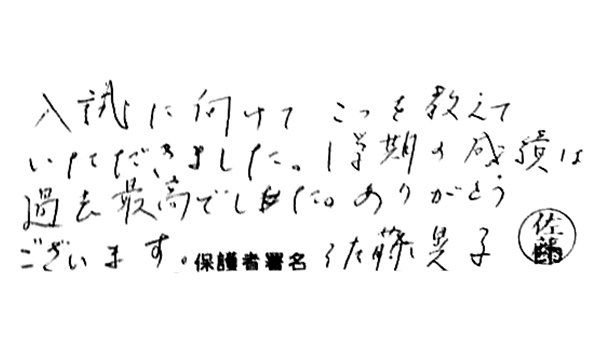 入試に向けて こつを教えて
いただきました。1学期の成績は
過去最高でした。ありがとう
ございます。保護者署名 佐藤晃子 佐藤印